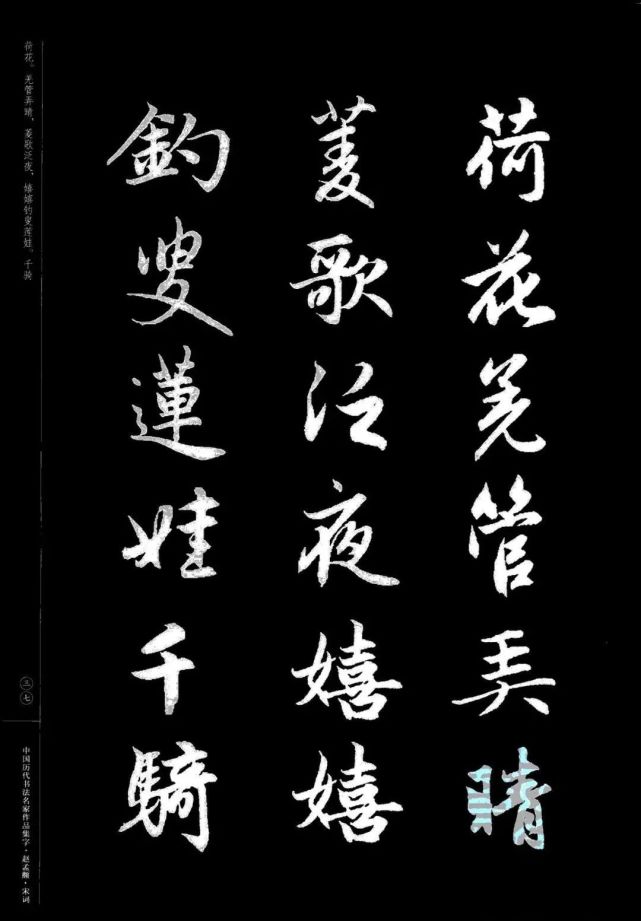 荷花羌管弄晴
菱歌泛夜嬉嬉
釣叟蓮娃千騎
荷花。羌管弄晴，菱歌泛夜，嬉嬉钓叟莲娃。千骑
三七
中国历代书法名家作品集字·赵孟頫·宋词